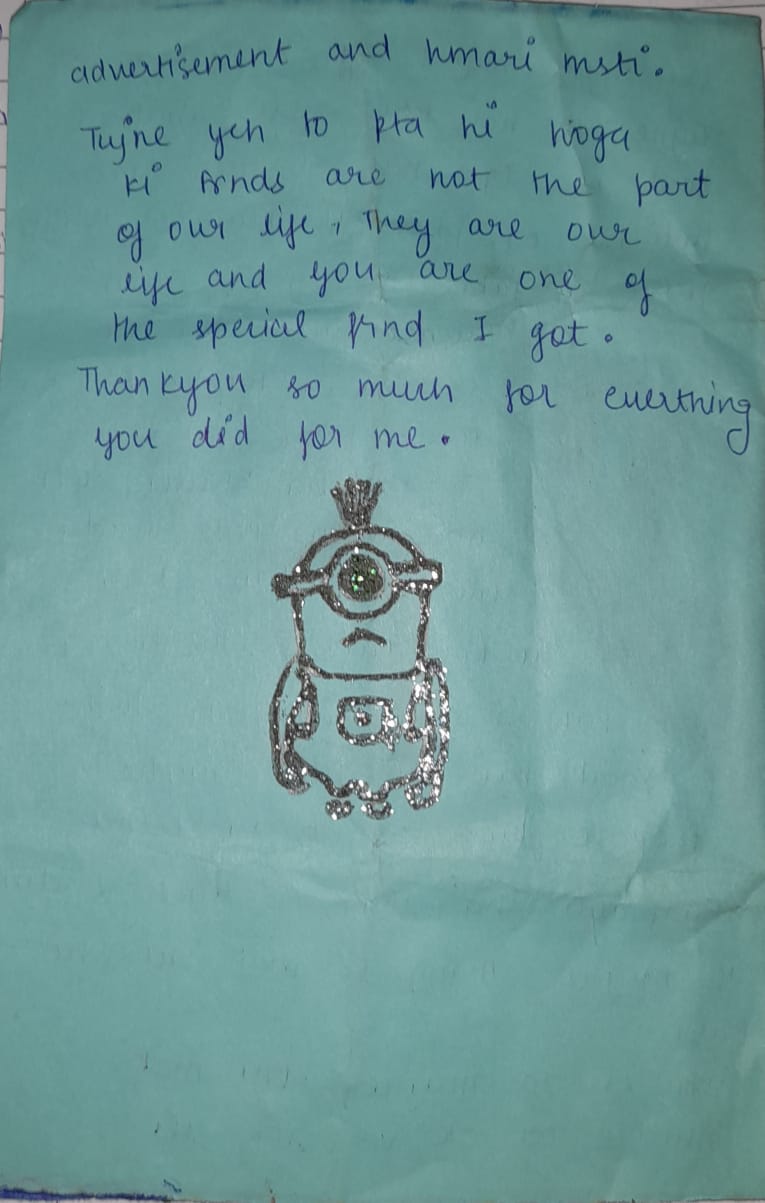 advertisement and hmari msti.
Tujhe yeh to pta hi hoga
ki frnds are not the part
of our life, They are our
life and you are one of
the special frnd I got.
Thankyou so much for everthing
you did for me.